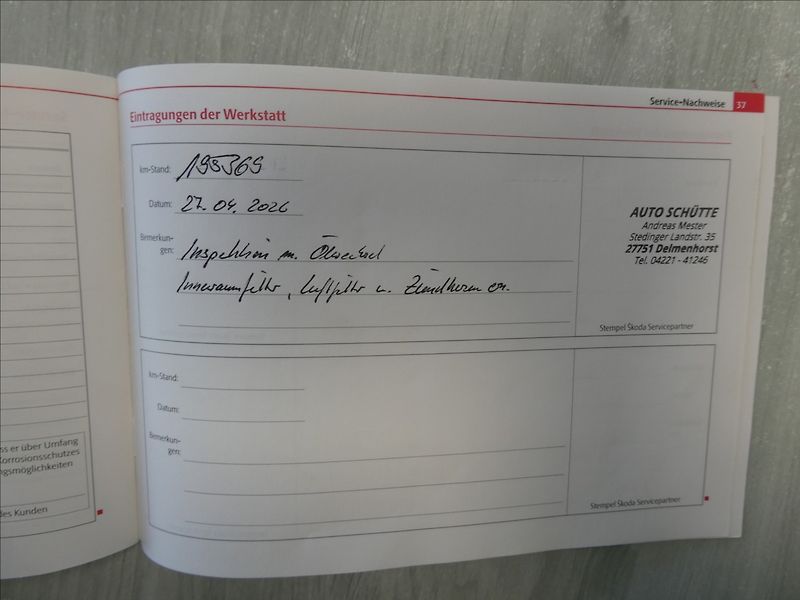 Service-Nachweise 37
Eintragungen der Werkstatt
km-Stand: 195369
Datum: 27.04.2026
Bemerkun-
gen: Inspektion m. Ölwechsel
Innenraumfilter, Luftfilter u. Zündkerzen ern.
AUTO SCHÜTTE
Andreas Mester
Stedinger Landstr. 35
27751 Delmenhorst
Tel. 04221 - 41246
Stempel Škoda Servicepartner
km-Stand:
Datum:
Bemerkun-
gen:
Stempel Škoda Servicepartner
ss er über Umfang
Korrosionsschutzes
ngsmöglichkeiten
des Kunden